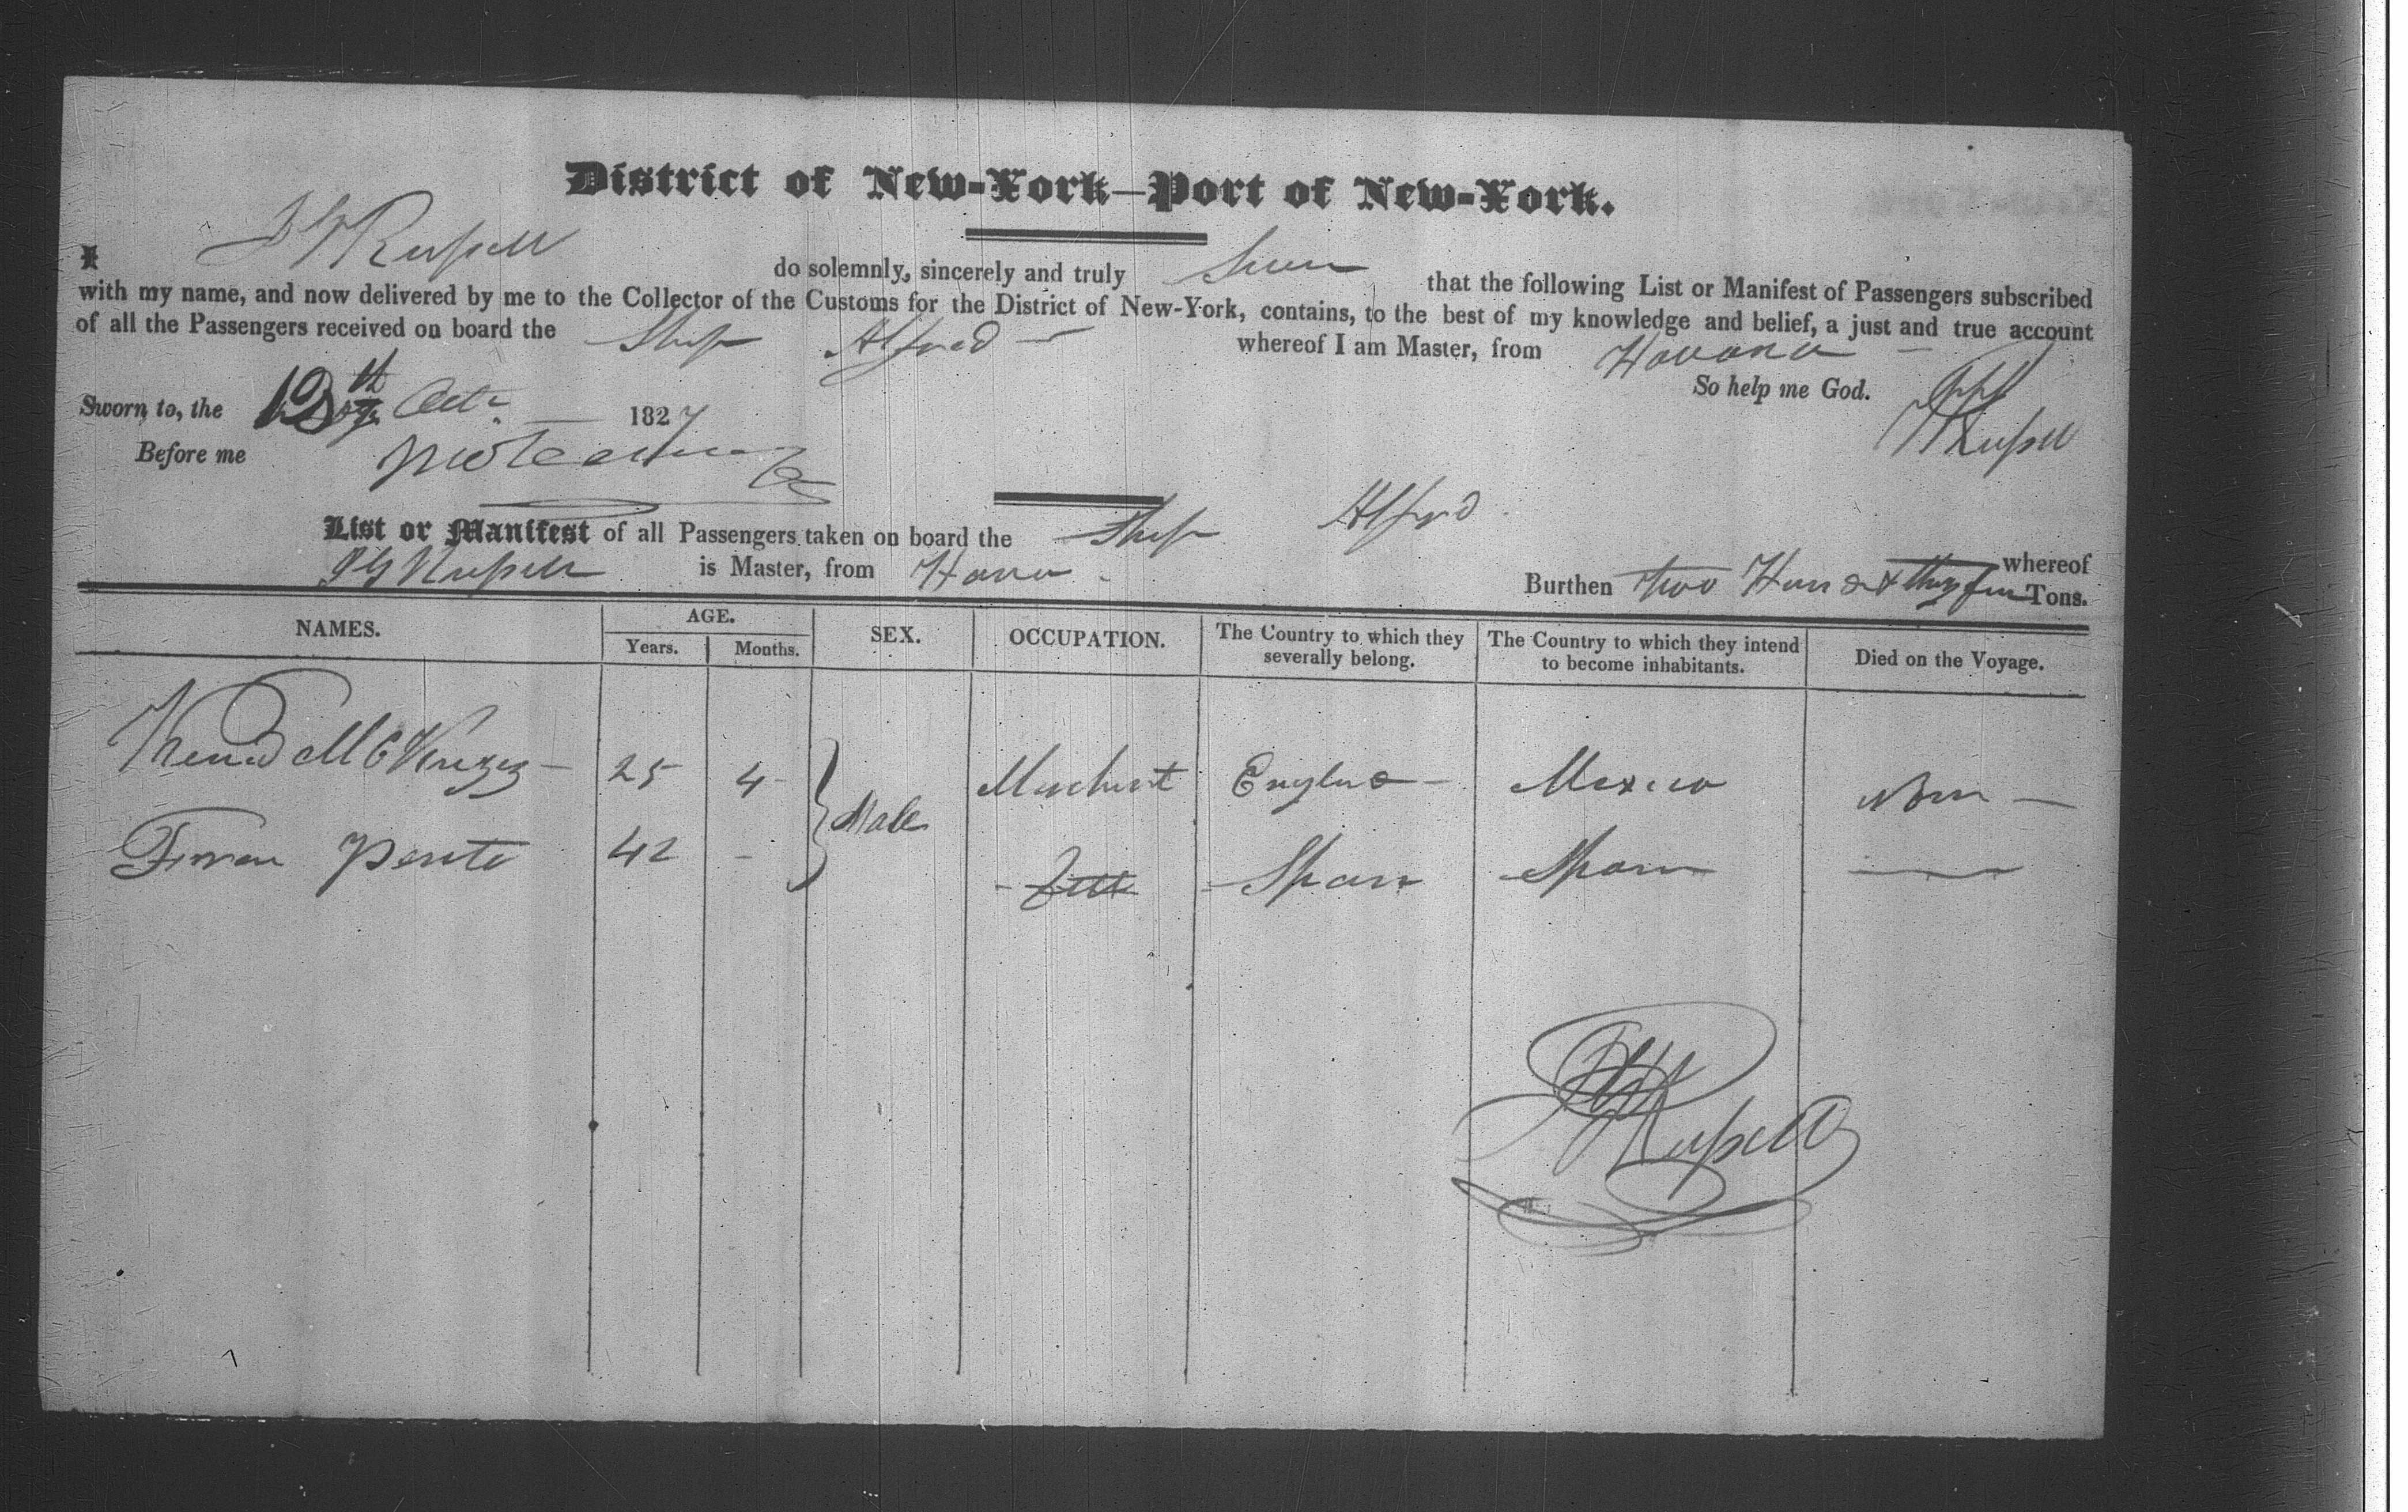 District of New-York—Port of New-York.
I Russell do solemnly, sincerely and truly swear that the following List or Manifest of Passengers subscribed
with my name, and now delivered by me to the Collector of the Customs for the District of New-York, contains, to the best of my knowledge and belief, a just and true account
of all the Passengers received on board the Ship Alfred whereof I am Master, from Havana
So help me God.
Sworn to, the Oct 1827
Russell
Before me
List or Manifest of all Passengers taken on board the Ship Alfred whereof
Russell is Master, from Hava Burthen Two Hund & Tons.
NAMES. AGE. SEX. OCCUPATION. The Country to which they severally belong. The Country to which they intend to become inhabitants. Died on the Voyage.
Years. Months.
25 4 Male Merchant England Mexico None
42 - Spain Spain
Russell